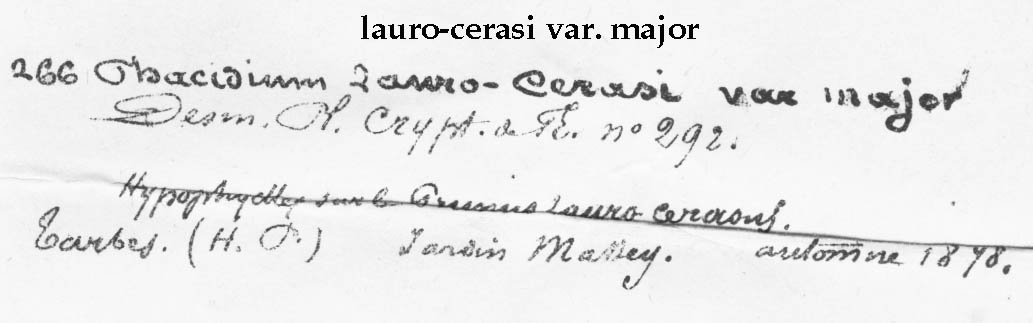 lauro-cerasi var. major
266 Phacidium Lauro-Cerasi var major
Desm. Pl. Crypt. de Fr. nº 292.
Hypophylles sur le Prunus Lauro cerasus.
Tarbes. (H. P.) Jardin Massey. automne 1878.